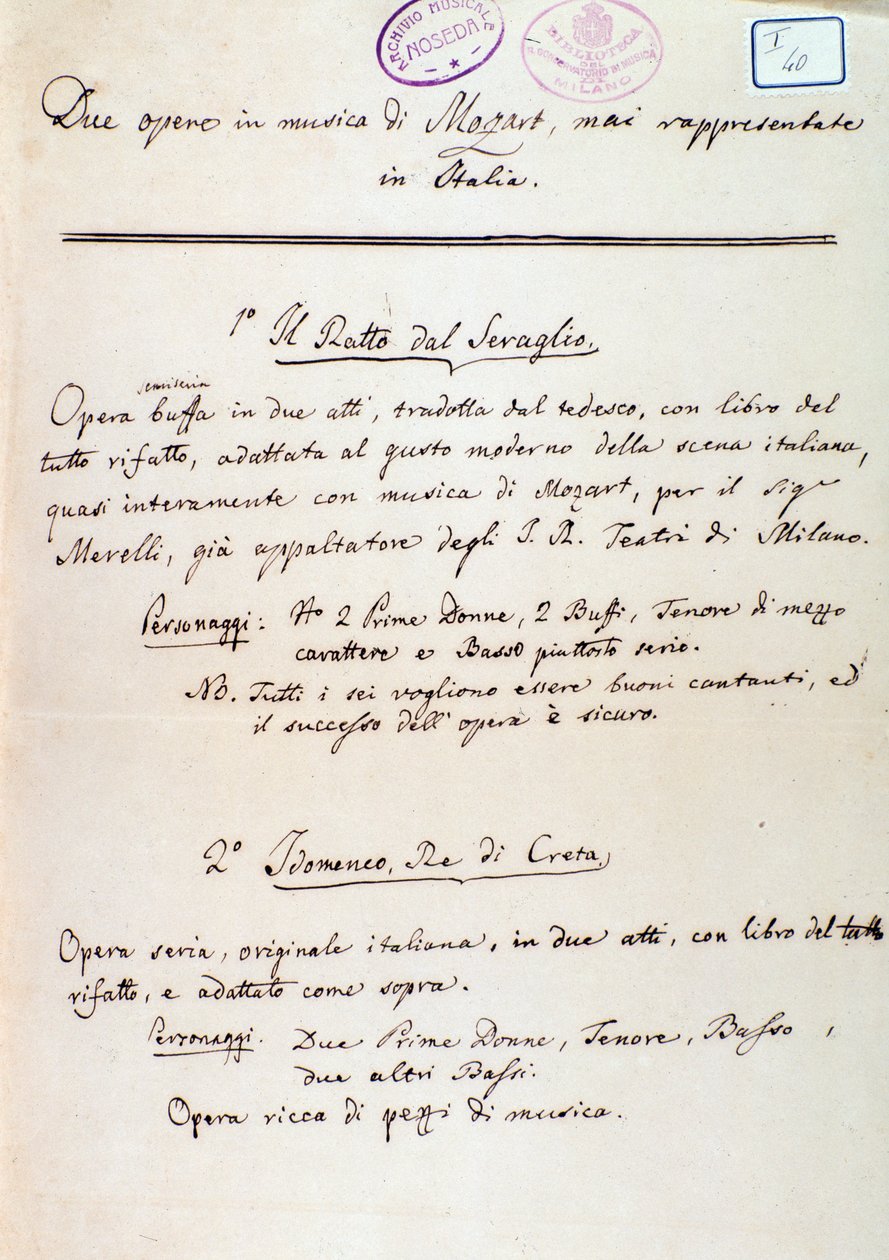 ARCHIVIO MUSICALE
NOSEDA
BIBLIOTECA
DEL
R. CONSERVATORIO DI MUSICA
DI
MILANO
I
40
Due opere in musica di Mozart, mai rappresentate
in Italia.
1º Il Ratto dal Seraglio.
semiseria
Opera buffa in due atti, tradotta dal tedesco, con libro del
tutto rifatto, adattata al gusto moderno della scena italiana,
quasi interamente con musica di Mozart, per il Sigr
Merelli, già appaltatore degli I. R. Teatri di Milano.
Personaggi: No 2 Prime Donne, 2 Buffi, Tenore di mezzo
carattere e Basso piuttosto serio.
NB. Tutti i sei vogliono essere buoni cantanti, ed
il successo dell'opera è sicuro.
2º Idomeneo, Re di Creta.
Opera seria, originale italiana, in due atti, con libro del tutto
rifatto, e adattato come sopra.
Personaggi. Due Prime Donne, Tenore, Basso,
due altri Bassi.
Opera ricca di pezzi di musica.